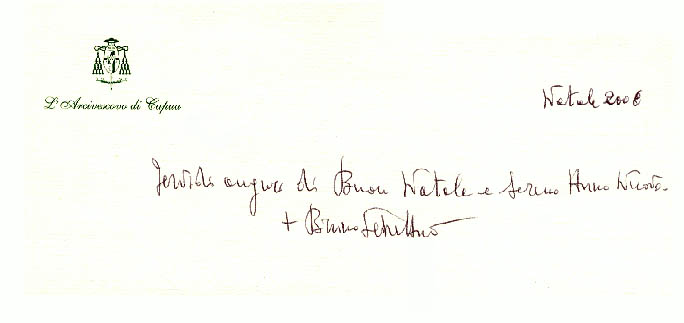 L'Arcivescovo di Capua
Natale 2006
Fervidi auguri di Buon Natale e sereno Anno Nuovo.
+ Bruno Schettino